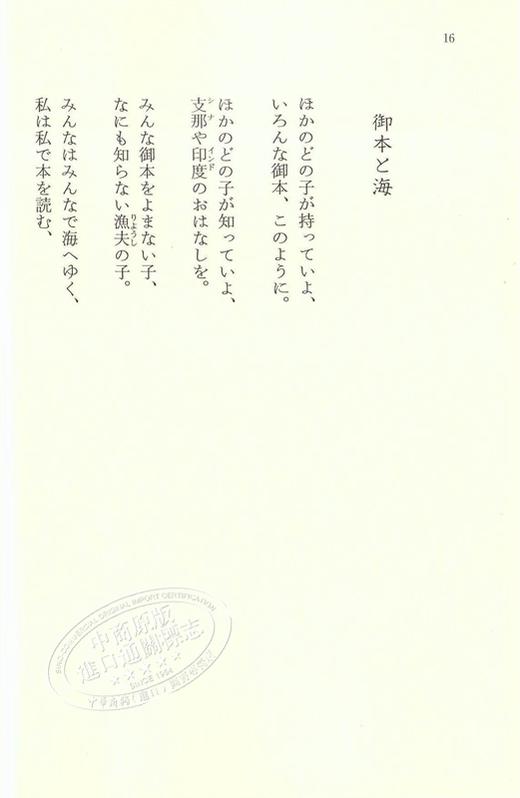 16
御本と海
ほかのどの子が持っていよ、
いろんな御本、このように。
ほかのどの子が知っていよ、
支那や印度のおはなしを。
シナ インド
みんな御本をよまない子、
なにも知らない漁夫の子。
りようし
みんなはみんなで海へゆく、
私は私で本を読む、
中商原版
進口通關標志
SINCE 1984